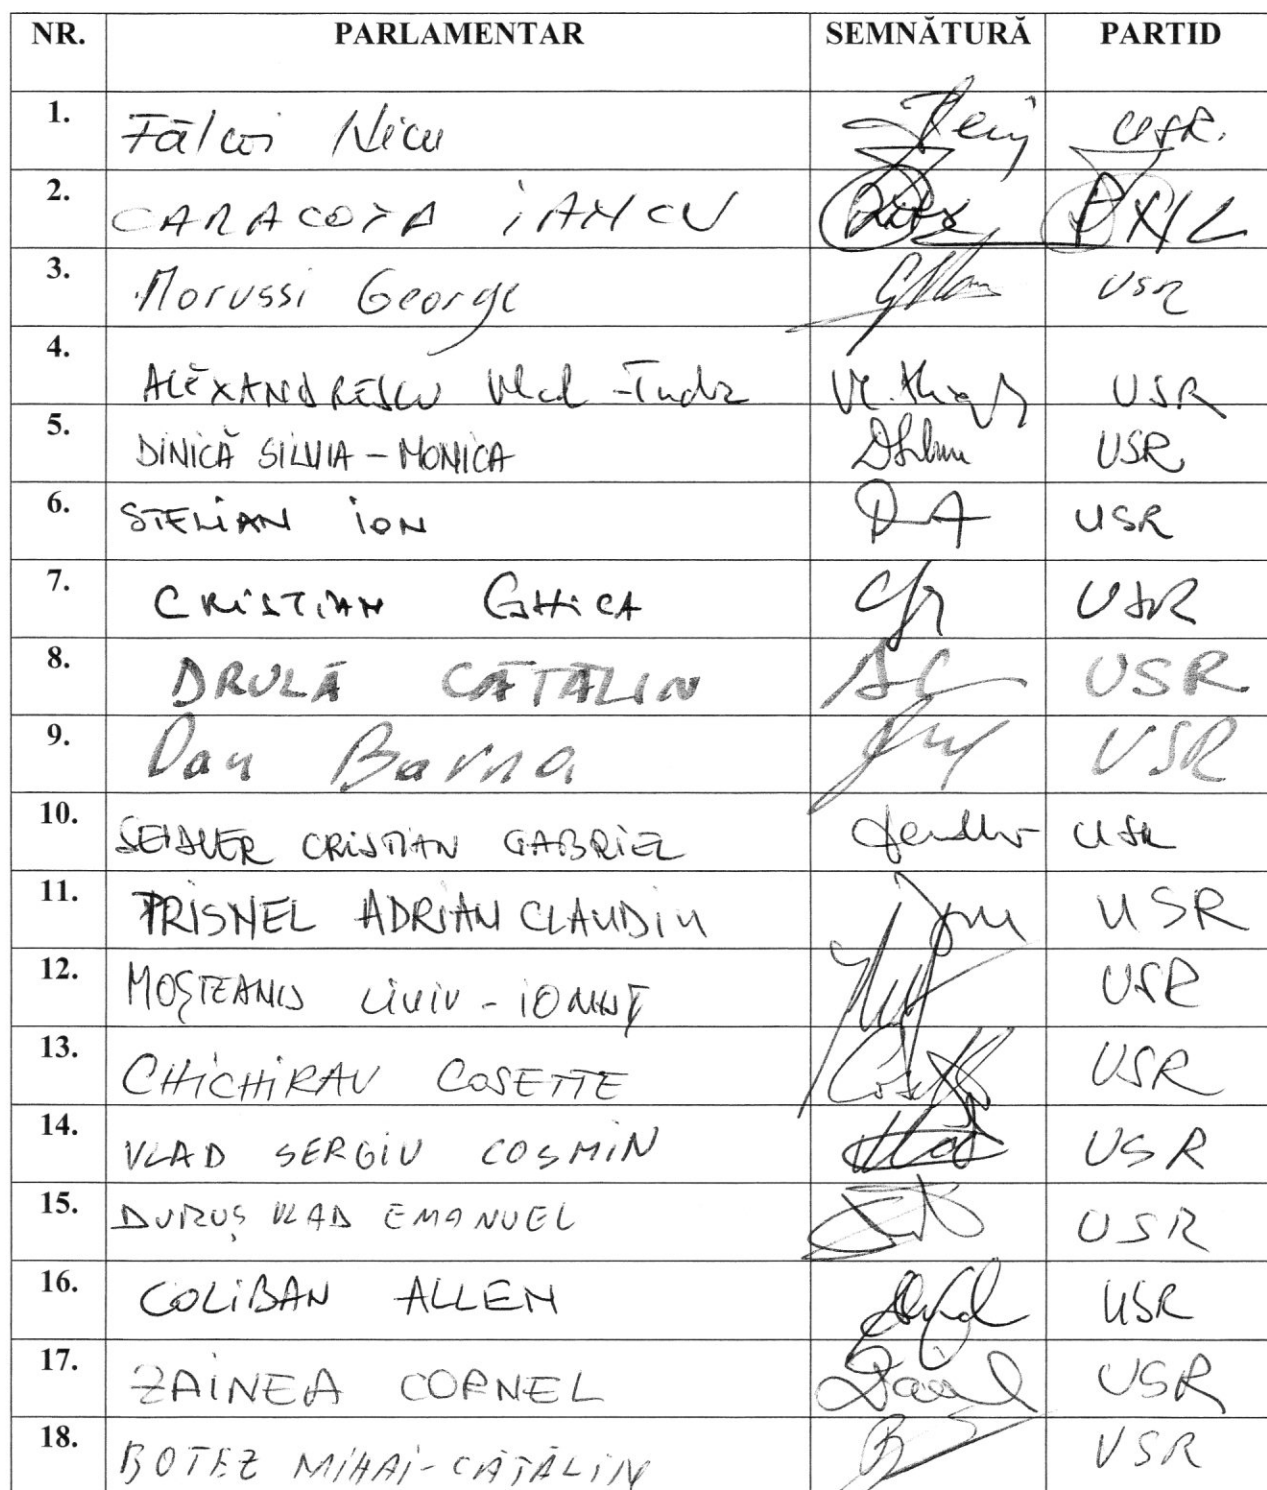 NR. PARLAMENTAR SEMNĂTURĂ PARTID
1. Fălcoi Nicu USR.
2. CARACOTA IANCU PNL
3. Morussi George USR
4. ALEXANDRESCU Vlad-Tudor USR
5. DINICĂ SILVIA - MONICA USR
6. STELIAN ION USR
7. CRISTIAN GHICA USR
8. DRULĂ CĂTĂLIN USR
9. Dan Barna USR
10. SEIDLER CRISTIAN GABRIEL USR
11. PRISNEL ADRIAN CLAUDIU USR
12. MOȘTEANU LIVIU - IONUȚ USR
13. CHICHIRAU COSETTE USR
14. VLAD SERGIU COSMIN USR
15. DURUȘ VLAD EMANUEL USR
16. COLIBAN ALLEN USR
17. ZAINEA CORNEL USR
18. BOTEZ MIHAI-CĂTĂLIN USR